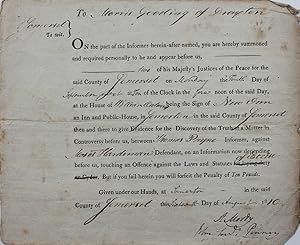 To Morris Gooding of Drayton
Somerset
To wit.
ON the part of the Informer herein-after named, you are hereby summoned
and required personally to be and appear before us,
two of his Majesty's Justices of the Peace for the
said County of Somerset on Monday the Tenth Day of
September next at Ten of the Clock in the Fore noon of the said Day,
at the House of William being the Sign of New Inn
an Inn and Public-House, in Somerton in the said County of Somerset
then and there to give Evidence for the Discovery of the Truth of a Matter in
Controversy before us, between Thomas Pryne Informer, against
Hardeman Defendant, on an Information now depending
before us, touching an Offence against the Laws and Statutes of Excise
on Cyder. But if you fail herein you will forfeit the Penalty of Ten Pounds.
Given under our Hands, at Somerton in the said
County of Somerset this Day of August 1810